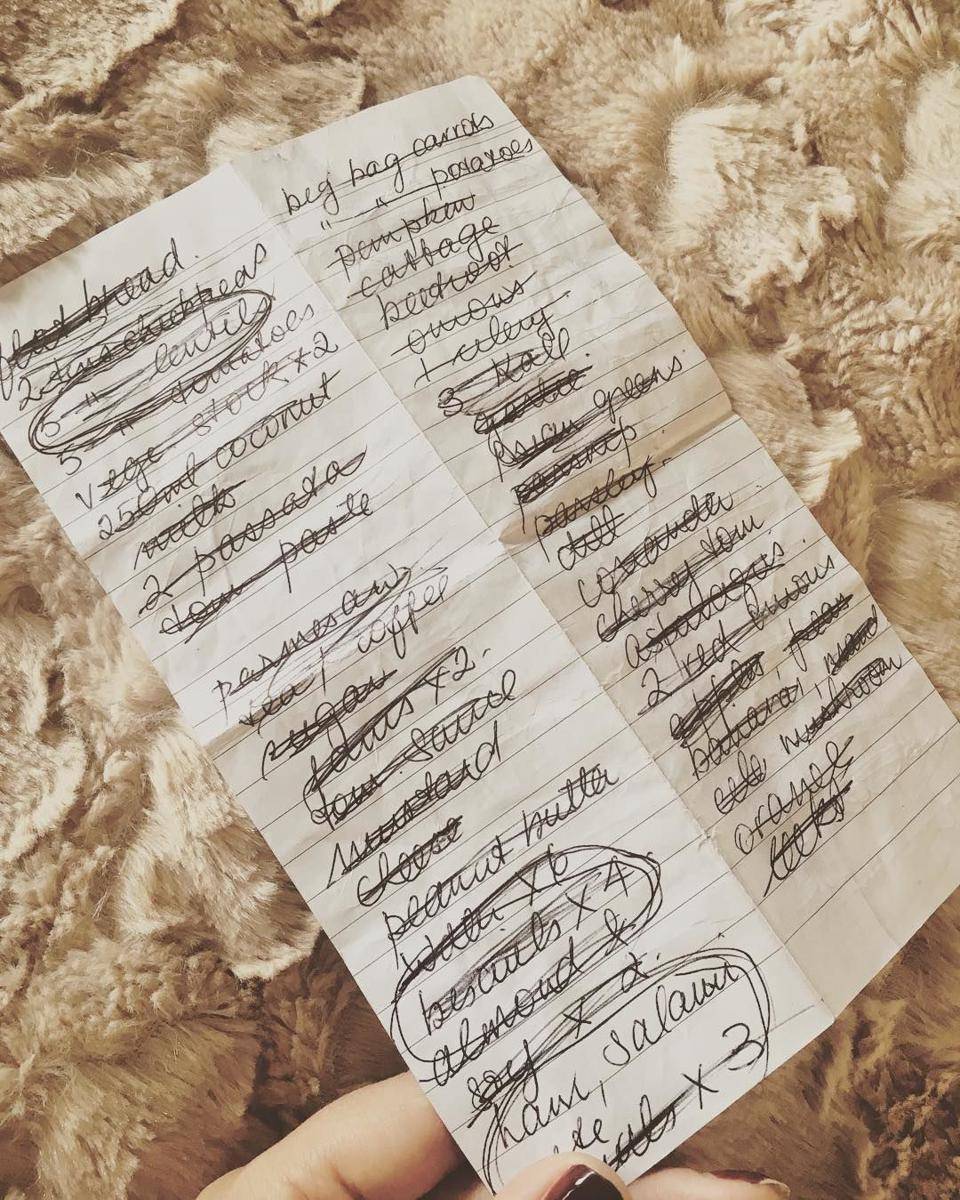 flat bread.
2 tins chickpeas
6 " lentils
5 " tomatoes
vege stock x 2
250ml coconut
milk
2 passata
tom paste
parmesan
tea, coffee
sugar
jams x 2.
tom sauce
mustard
cheese
peanut butter
x 6
biscuits x 4
almond &
soy x 2.
ham, salami
x 3
beg bag carrots
" " potatoes
pumpkin
cabbage
beetroot
onions
1 celery
3 kale
garlic
Asian greens
parsnip
parsley
dill
coriander
cherry tom
asparagus
2 red onions
apples pears
banana,
mushroom
orange
leeks